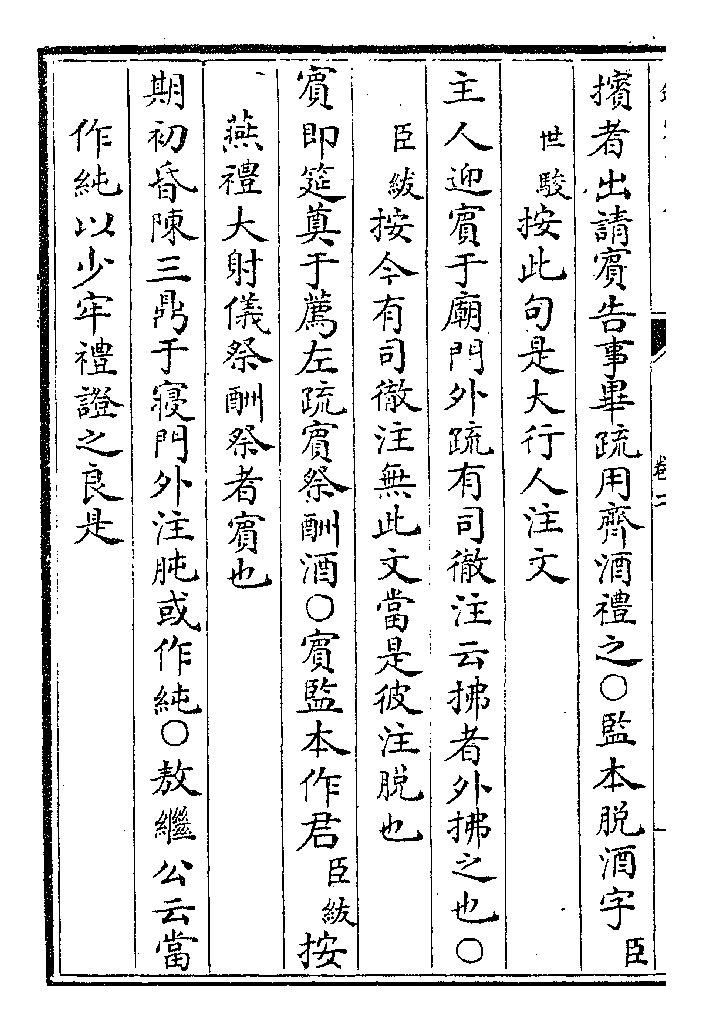 擯者出請賓告事畢疏用齊酒禮之○監本脱酒字臣
世駿按此句是大行人注文
主人迎賓于廟門外疏有司徹注云拂者外拂之也○
臣紱按今有司徹注無此文當是彼注脱也
賓即筵奠于薦左疏賓祭酬酒○賓監本作君臣紱按
燕禮大射儀祭酬祭者賓也
期初昏陳三鼎于寢門外注肫或作純○敖繼公云當
作純以少牢禮證之良是